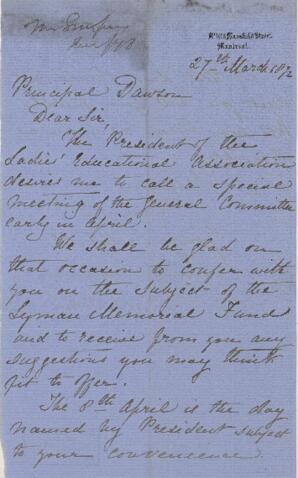 Mansfield Street,
Montreal.
27th March 1872
Principal Dawson
Dear Sir,
The President of the
Ladies' Educational Association
desires me to call a special
meeting of the General Committee
early in April.
We shall be glad on
that occasion to confer with
you on the subject of the
Lyman Memorial Fund
and to receive from you any
suggestions you may think
fit to offer.
The 8th April is the day
named by President subject
to your convenience.